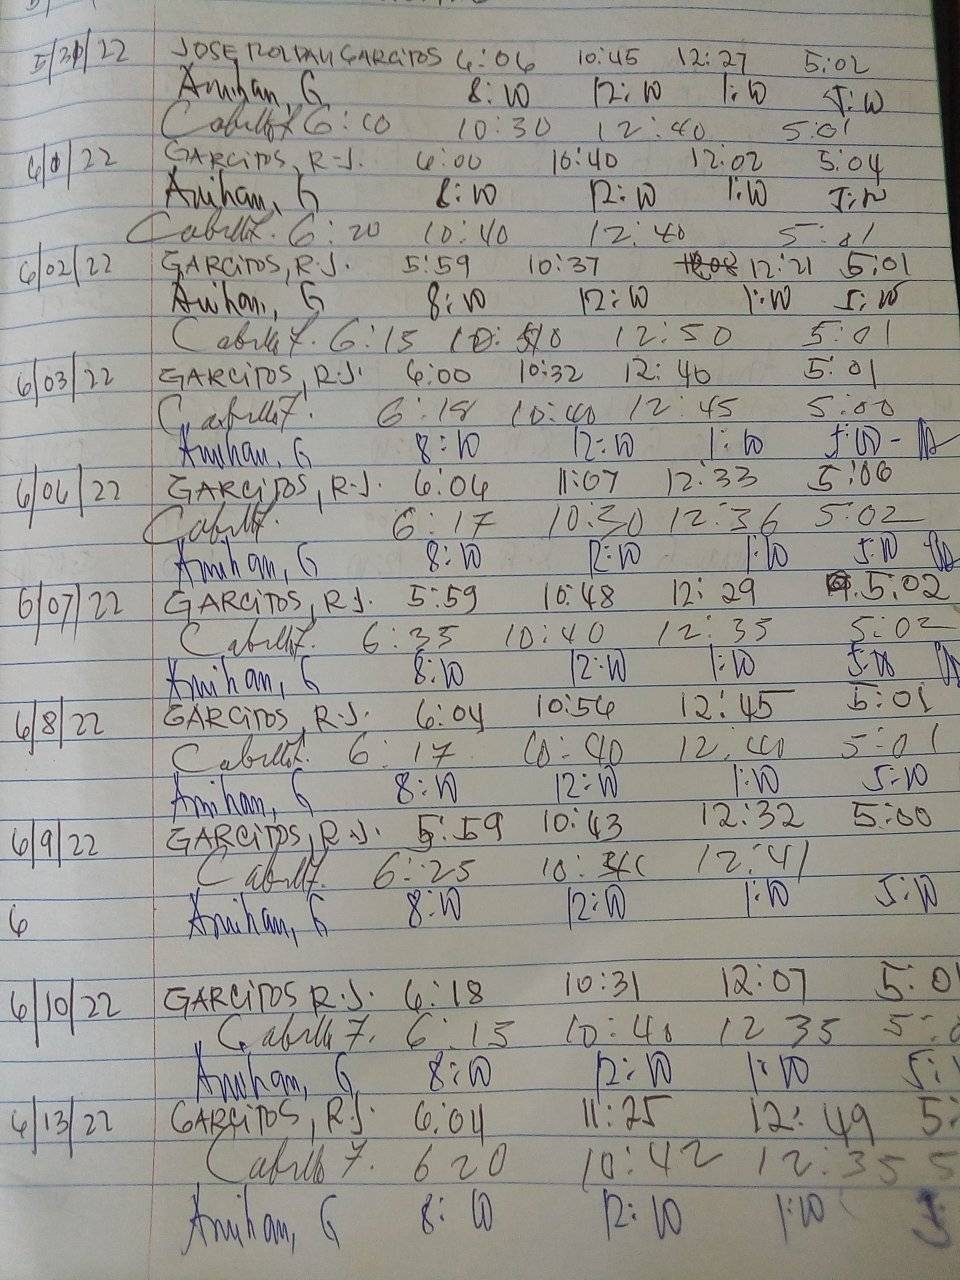 5/31/22 JOSE ROLDAN GARCITOS 6:06 10:45 12:27 5:02
Anihan, G 8:00 12:00 1:00 5:00
Cabillo 7 6:10 10:30 12:40 5:01
6/1/22 GARCITOS, R.J. 6:00 10:40 12:02 5:04
Anihan, G 8:00 12:00 1:00 5:00
Cabillo 7. 6:20 10:40 12:40 5:01
6/02/22 GARCITOS, R.J. 5:59 10:37 12:21 5:01
Anihan, G 8:00 12:00 1:00 5:00
Cabillo 7. 6:15 12:50 5:01
6/03/22 GARCITOS, R.J. 6:00 10:32 12:40 5:01
Cabillo 7. 6:18 10:40 12:45 5:00
Anihan, G 8:00 12:00 1:00 5:00
6/06/22 GARCITOS, R.J. 6:06 11:07 12:33 5:00
Cabillo 7. 6:17 10:30 12:36 5:02
Anihan, G 8:00 12:00 1:00 5:00
6/07/22 GARCITOS, R.J. 5:59 10:48 12:29 5:02
Cabillo 7. 6:35 10:40 12:35 5:02
Anihan, G 8:00 12:00 1:00 5:00
6/8/22 GARCITOS, R.J. 6:04 10:56 12:45 5:01
Cabillo 7. 6:17 10:40 12:40 5:01
Anihan, G 8:00 12:00 1:00 5:00
6/9/22 GARCITOS, R.J. 5:59 10:43 12:32 5:00
Cabillo 7. 6:25 12:41
6 Anihan, G 8:00 12:00 1:00 5:00
6/10/22 GARCITOS R.J. 6:18 10:31 12:07 5:0
Cabillo 7. 6:15 10:40 12 35 5:0
Anihan, G 8:00 12:00 1:00 5:
6/13/22 GARCITOS, R.J. 6:04 11:25 12:49 5:
Cabillo 7. 6 20 10:42 12:35 5
Anihan, G 8:00 12:00 1:00 5: